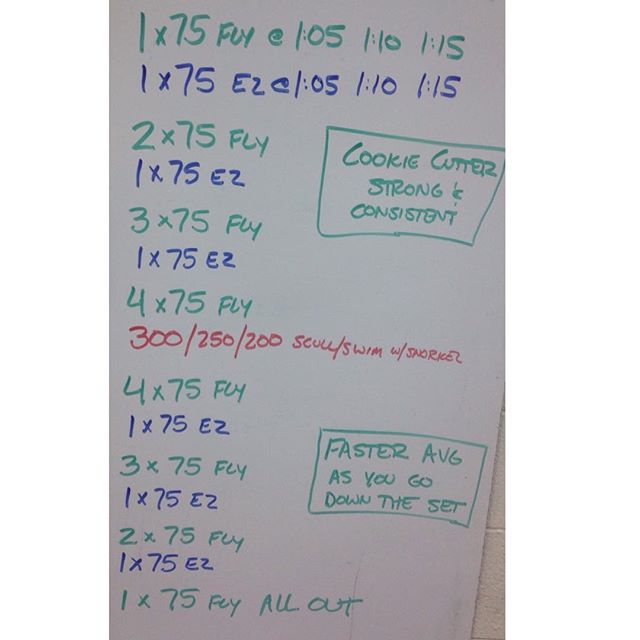 1 x 75 FLY @ 1:05 1:10 1:15
1 x 75 EZ @ 1:05 1:10 1:15
2 x 75 FLY
1 x 75 EZ
COOKIE CUTTER
STRONG &
CONSISTENT
3 x 75 FLY
1 x 75 EZ
4 x 75 FLY
300/250/200 SCULL/SWIM W/SNORKEL
4 x 75 FLY
1 x 75 EZ
3 x 75 FLY
1 x 75 EZ
FASTER AVG
AS YOU GO
DOWN THE SET
2 x 75 FLY
1 x 75 EZ
1 x 75 FLY ALL OUT